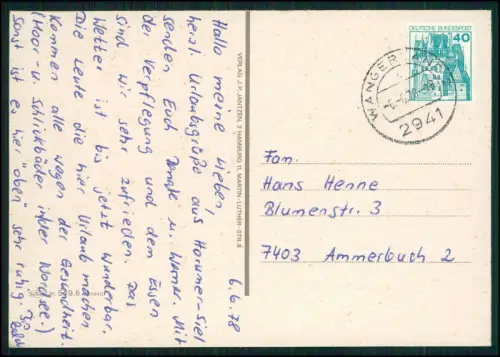 6.6.78
Hallo meine Lieben,
herzl. Urlaubsgrüße aus Hommer-Siel
senden Euch u. Werner. Mit
der Verpflegung und dem Essen
sind wir sehr zufrieden. Das
Wetter ist bis jetzt wunderbar.
Die Leute die hier Urlaub machen
kommen alle wegen der Gesundheit.
(Moor- u. Schlickbäder in der Nordsee.)
Sonst ist es hier "oben" sehr ruhig.
VERLAG J. P. JANTZEN, 2 HAMBURG 11, MARTIN-LUTHER-STR. 8
DEUTSCHE BUNDESPOST
40
2941
Fam.
Hans Henne
Blumenstr. 3
7403 Ammerbuch 2